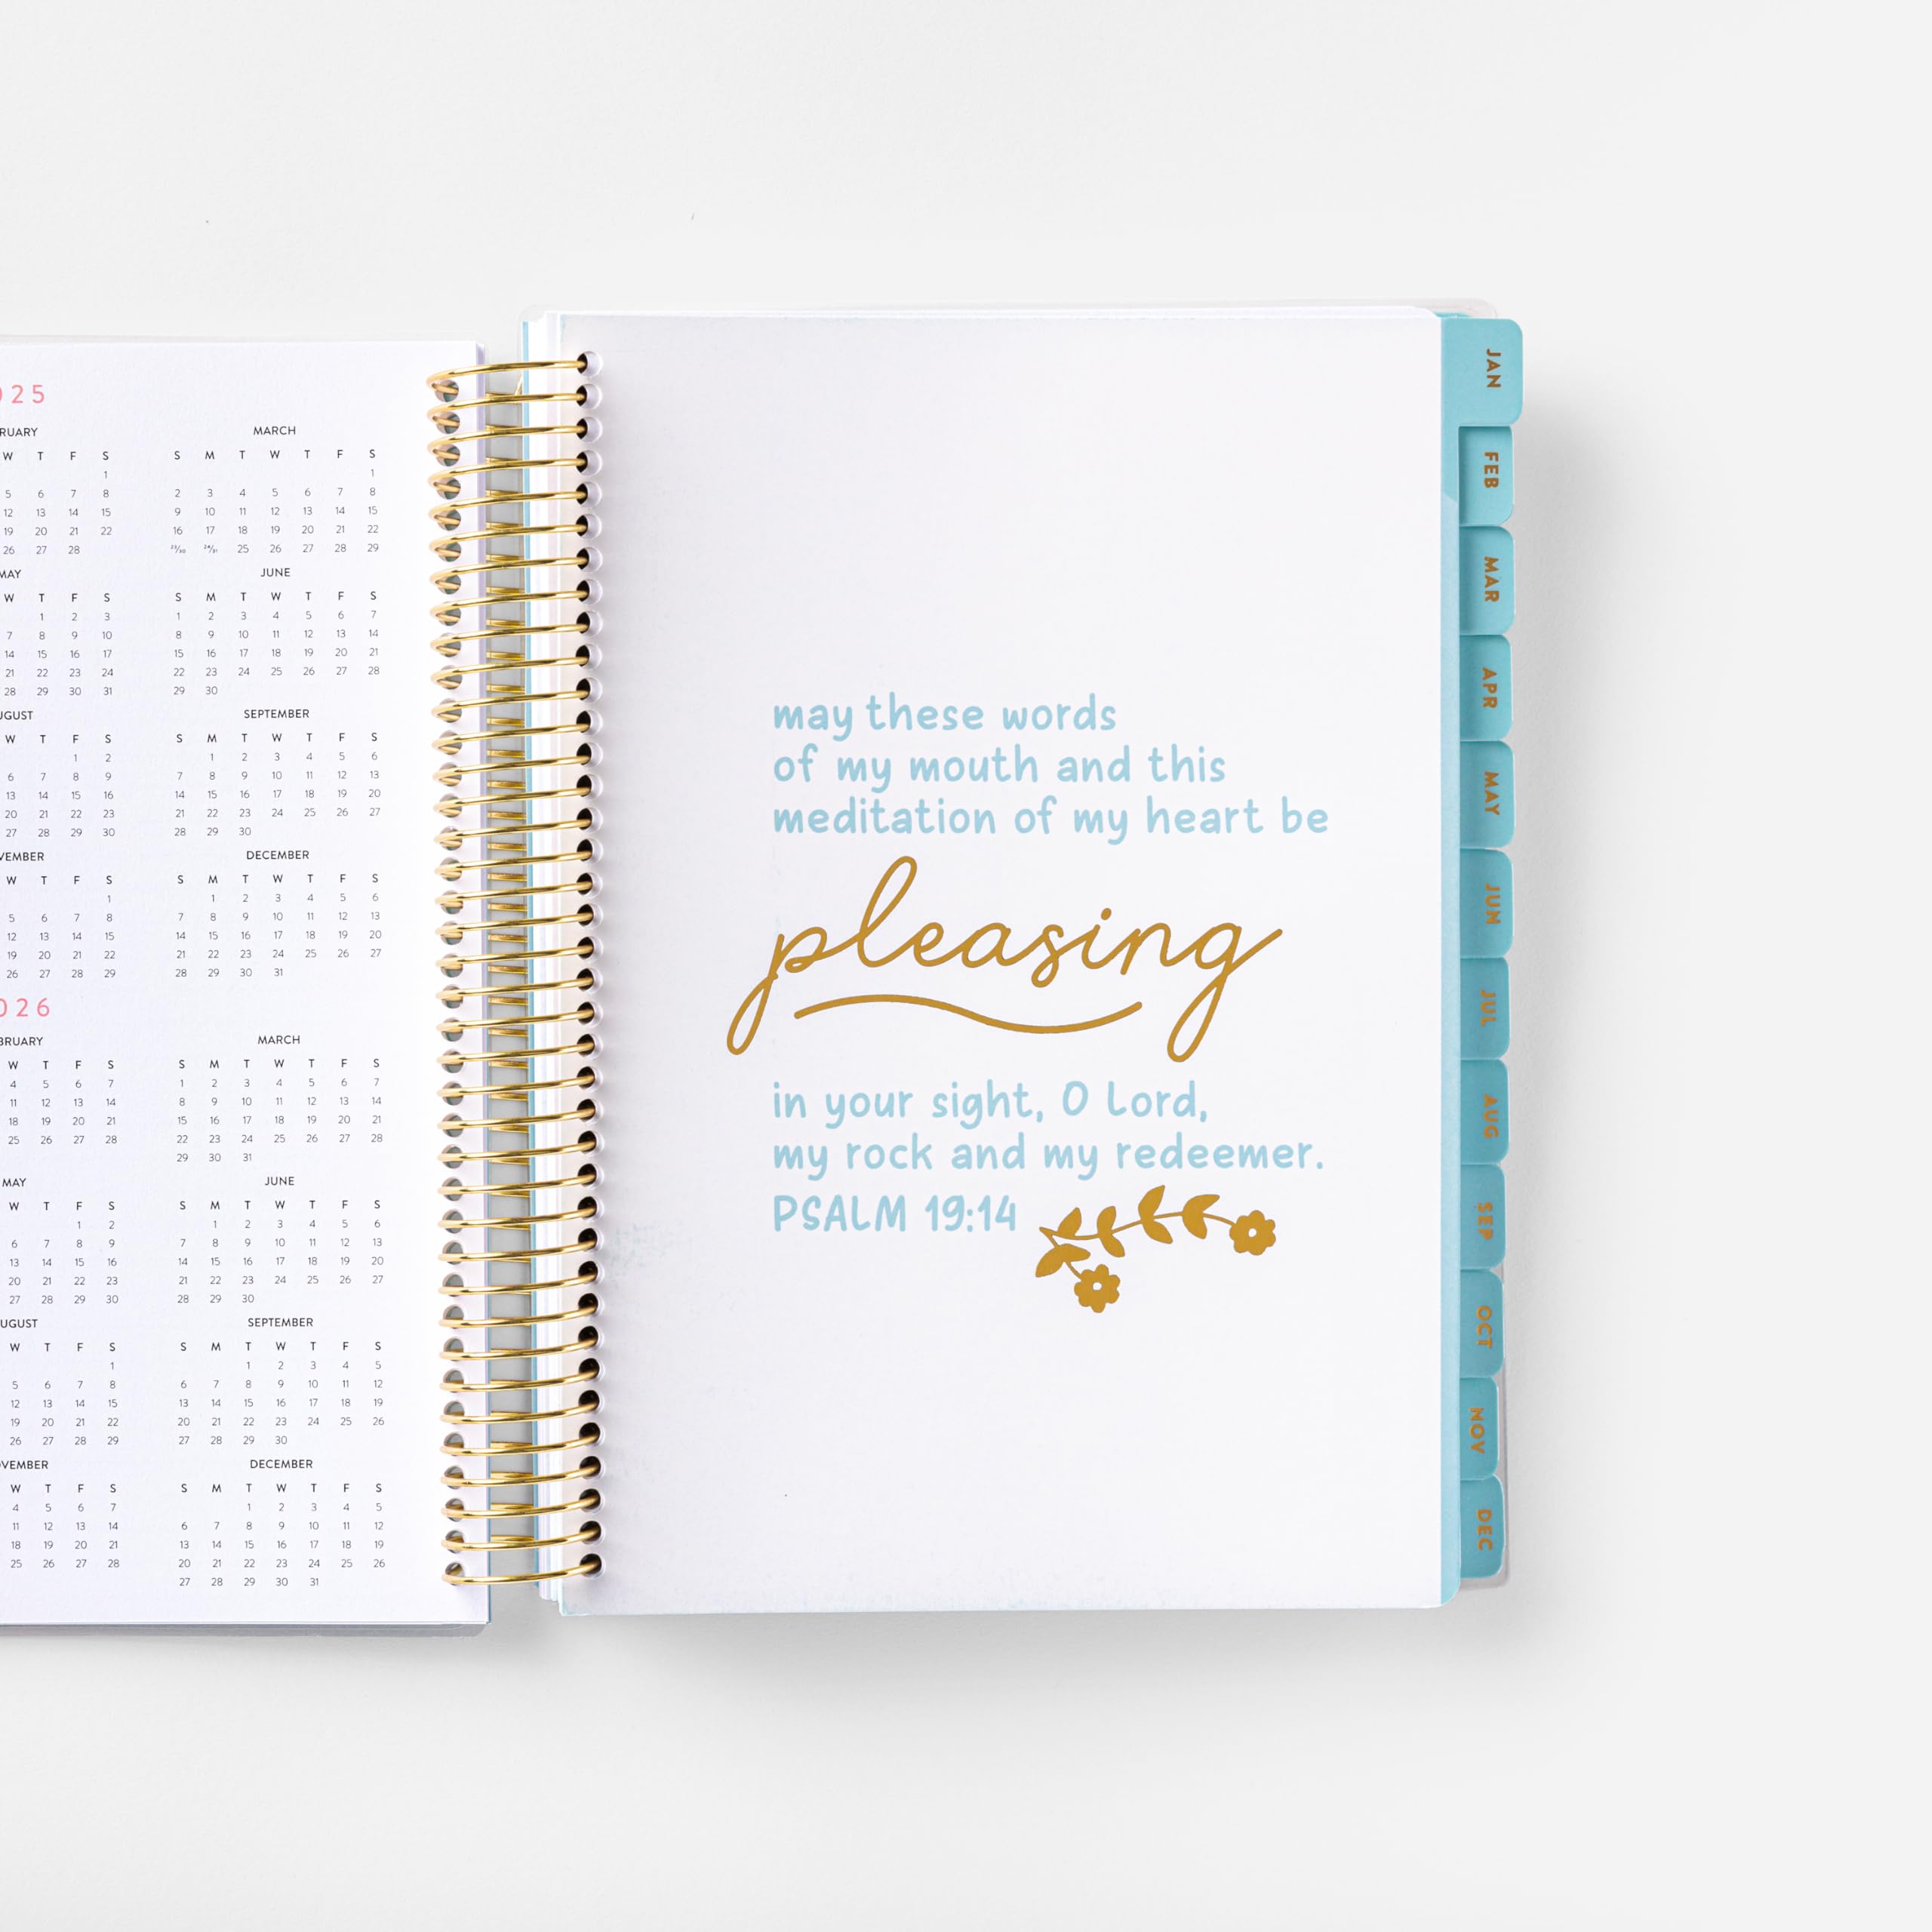 025
RUARY MARCH
W T F S S M T W T F S
1 1
5 6 7 8 2 3 4 5 6 7 8
12 13 14 15 9 10 11 12 13 14 15
19 20 21 22 16 17 18 19 20 21 22
26 27 28 23/30 24/31 25 26 27 28 29
MAY JUNE
W T F S S M T W T F S
1 2 3 1 2 3 4 5 6 7
7 8 9 10 8 9 10 11 12 13 14
14 15 16 17 15 16 17 18 19 20 21
21 22 23 24 22 23 24 25 26 27 28
28 29 30 31 29 30
UGUST SEPTEMBER
W T F S S M T W T F S
1 2 1 2 3 4 5 6
6 7 8 9 7 8 9 10 11 12 13
13 14 15 16 14 15 16 17 18 19 20
20 21 22 23 21 22 23 24 25 26 27
27 28 29 30 28 29 30
VEMBER DECEMBER
W T F S S M T W T F S
1 1 2 3 4 5 6
5 6 7 8 7 8 9 10 11 12 13
12 13 14 15 14 15 16 17 18 19 20
19 20 21 22 21 22 23 24 25 26 27
26 27 28 29 28 29 30 31
026
BRUARY MARCH
W T F S S M T W T F S
4 5 6 7 1 2 3 4 5 6 7
11 12 13 14 8 9 10 11 12 13 14
18 19 20 21 15 16 17 18 19 20 21
25 26 27 28 22 23 24 25 26 27 28
29 30 31
MAY JUNE
W T F S S M T W T F S
1 2 1 2 3 4 5 6
6 7 8 9 7 8 9 10 11 12 13
13 14 15 16 14 15 16 17 18 19 20
20 21 22 23 21 22 23 24 25 26 27
27 28 29 30 28 29 30
UGUST SEPTEMBER
W T F S S M T W T F S
1 1 2 3 4 5
5 6 7 8 6 7 8 9 10 11 12
12 13 14 15 13 14 15 16 17 18 19
19 20 21 22 20 21 22 23 24 25 26
26 27 28 29 27 28 29 30
OVEMBER DECEMBER
W T F S S M T W T F S
4 5 6 7 1 2 3 4 5
11 12 13 14 6 7 8 9 10 11 12
18 19 20 21 13 14 15 16 17 18 19
25 26 27 28 20 21 22 23 24 25 26
27 28 29 30 31
may these words
of my mouth and this
meditation of my heart be
pleasing
in your sight, O Lord,
my rock and my redeemer.
PSALM 19:14
JAN
FEB
MAR
APR
MAY
JUN
JUL
AUG
SEP
OCT
NOV
DEC